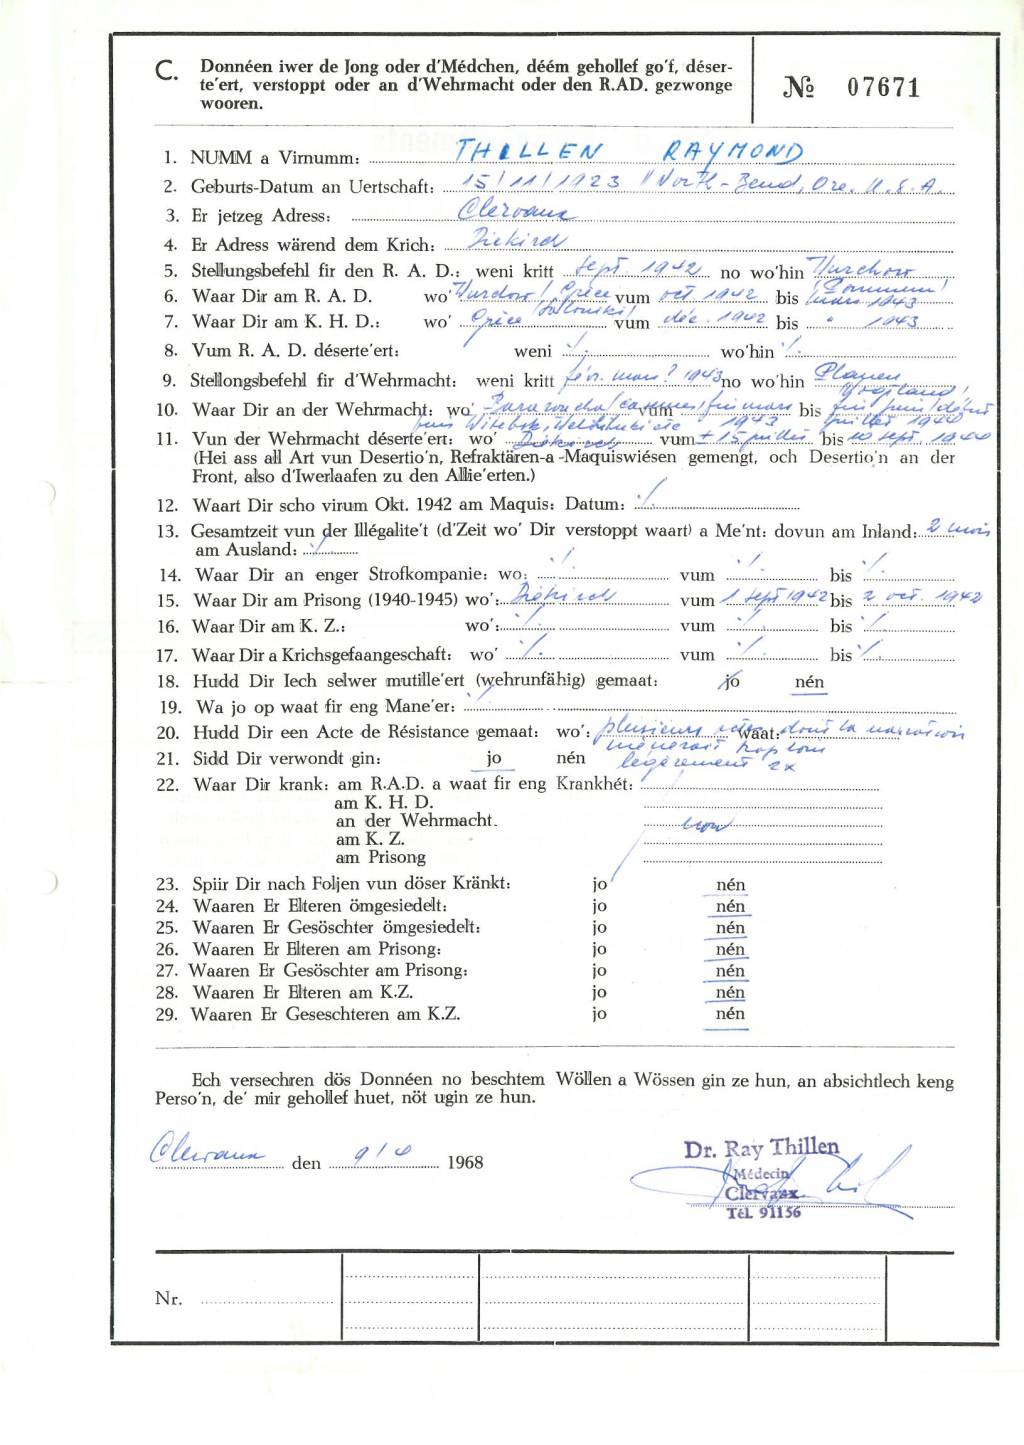 C. Donnéen iwer de Jong oder d'Médchen, déém gehollef go'f, déser-
te'ert, verstoppt oder an d'Wehrmacht oder den R.AD. gezwonge
wooren.
№ 07671
1. NUMM a Virnumm: THILLEN RAYMOND
2. Geburts-Datum an Uertschaft: 15/11/1923 North-Bend, Ore. U.S.A.
3. Er jetzeg Adress: Clervaux
4. Er Adress wärend dem Krich: Diekirch
5. Stellungsbefehl fir den R. A. D.: weni kritt sept. 1942 no wo'hin Wurchow
(Pommern)
6. Waar Dir am R. A. D. wo' Wurchow/Grèce vum oct. 1942 bis mars 1943
(Saloniki)
7. Waar Dir am K. H. D.: wo' Grèce vum déc. 1942 bis " 1943
8. Vum R. A. D. déserte'ert: weni ./. wo'hin ./.
9. Stellongsbefehl fir d'Wehrmacht: weni kritt févr. mars? 1943 no wo'hin Plauen
Vogtland
10. Waar Dir an der Wehrmacht: wo' casernes/ vum fin mars bis fin juin/début
Witebsk, 1943 juillet 1944
11. Vun der Wehrmacht déserte'ert: wo' Diekirch vum ± 15 juillet bis 10 sept. 1944
(Hei ass all Art vun Desertio'n, Refraktären-a -Maquiswiésen gemengt, och Desertio'n an der
Front, also d'Iwerlaafen zu den Allie'erten.)
12. Waart Dir scho virum Okt. 1942 am Maquis: Datum: ./.
13. Gesamtzeit vun der Illégalite't (d'Zeit wo' Dir verstoppt waart) a Me'nt: dovun am Inland: 2 mois
am Ausland: ./.
14. Waar Dir an enger Strofkompanie: wo: ./. vum ./. bis ./.
15. Waar Dir am Prisong (1940-1945) wo': Diekirch vum 1 sept 1942 bis 2 oct. 1942
16. Waar Dir am K. Z.: wo': ./. vum ./. bis ./.
17. Waar Dir a Krichsgefaangeschaft: wo' ./. vum ./. bis ./.
18. Hudd Dir Iech selwer mutille'ert (wehrunfähig) gemaat: jo nén
19. Wa jo op waat fir eng Mane'er: ./.
20. Hudd Dir een Acte de Résistance gemaat: wo': plusieurs actes waat: dont la narration
mènerait trop loin
21. Sidd Dir verwondt gin: jo nén légèrement 2x
22. Waar Dir krank: am R.A.D. a waat fir eng Krankhét:
am K. H. D.
an der Wehrmacht. non
am K. Z.
am Prisong
23. Spiir Dir nach Foljen vun döser Kränkt: jo nén
24. Waaren Er Elteren ömgesiedelt: jo nén
25. Waaren Er Gesöschter ömgesiedelt: jo nén
26. Waaren Er Elteren am Prisong: jo nén
27. Waaren Er Gesöschter am Prisong: jo nén
28. Waaren Er Elteren am K.Z. jo nén
29. Waaren Er Geseschteren am K.Z. jo nén
Ech versechren dös Donnéen no beschtem Wöllen a Wössen gin ze hun, an absichtlech keng
Perso'n, de' mir gehollef huet, nöt ugin ze hun.
Clervaux den 9/4 1968
Dr. Ray Thillen
Médecin
Clervaux
Tél. 91156
Nr.